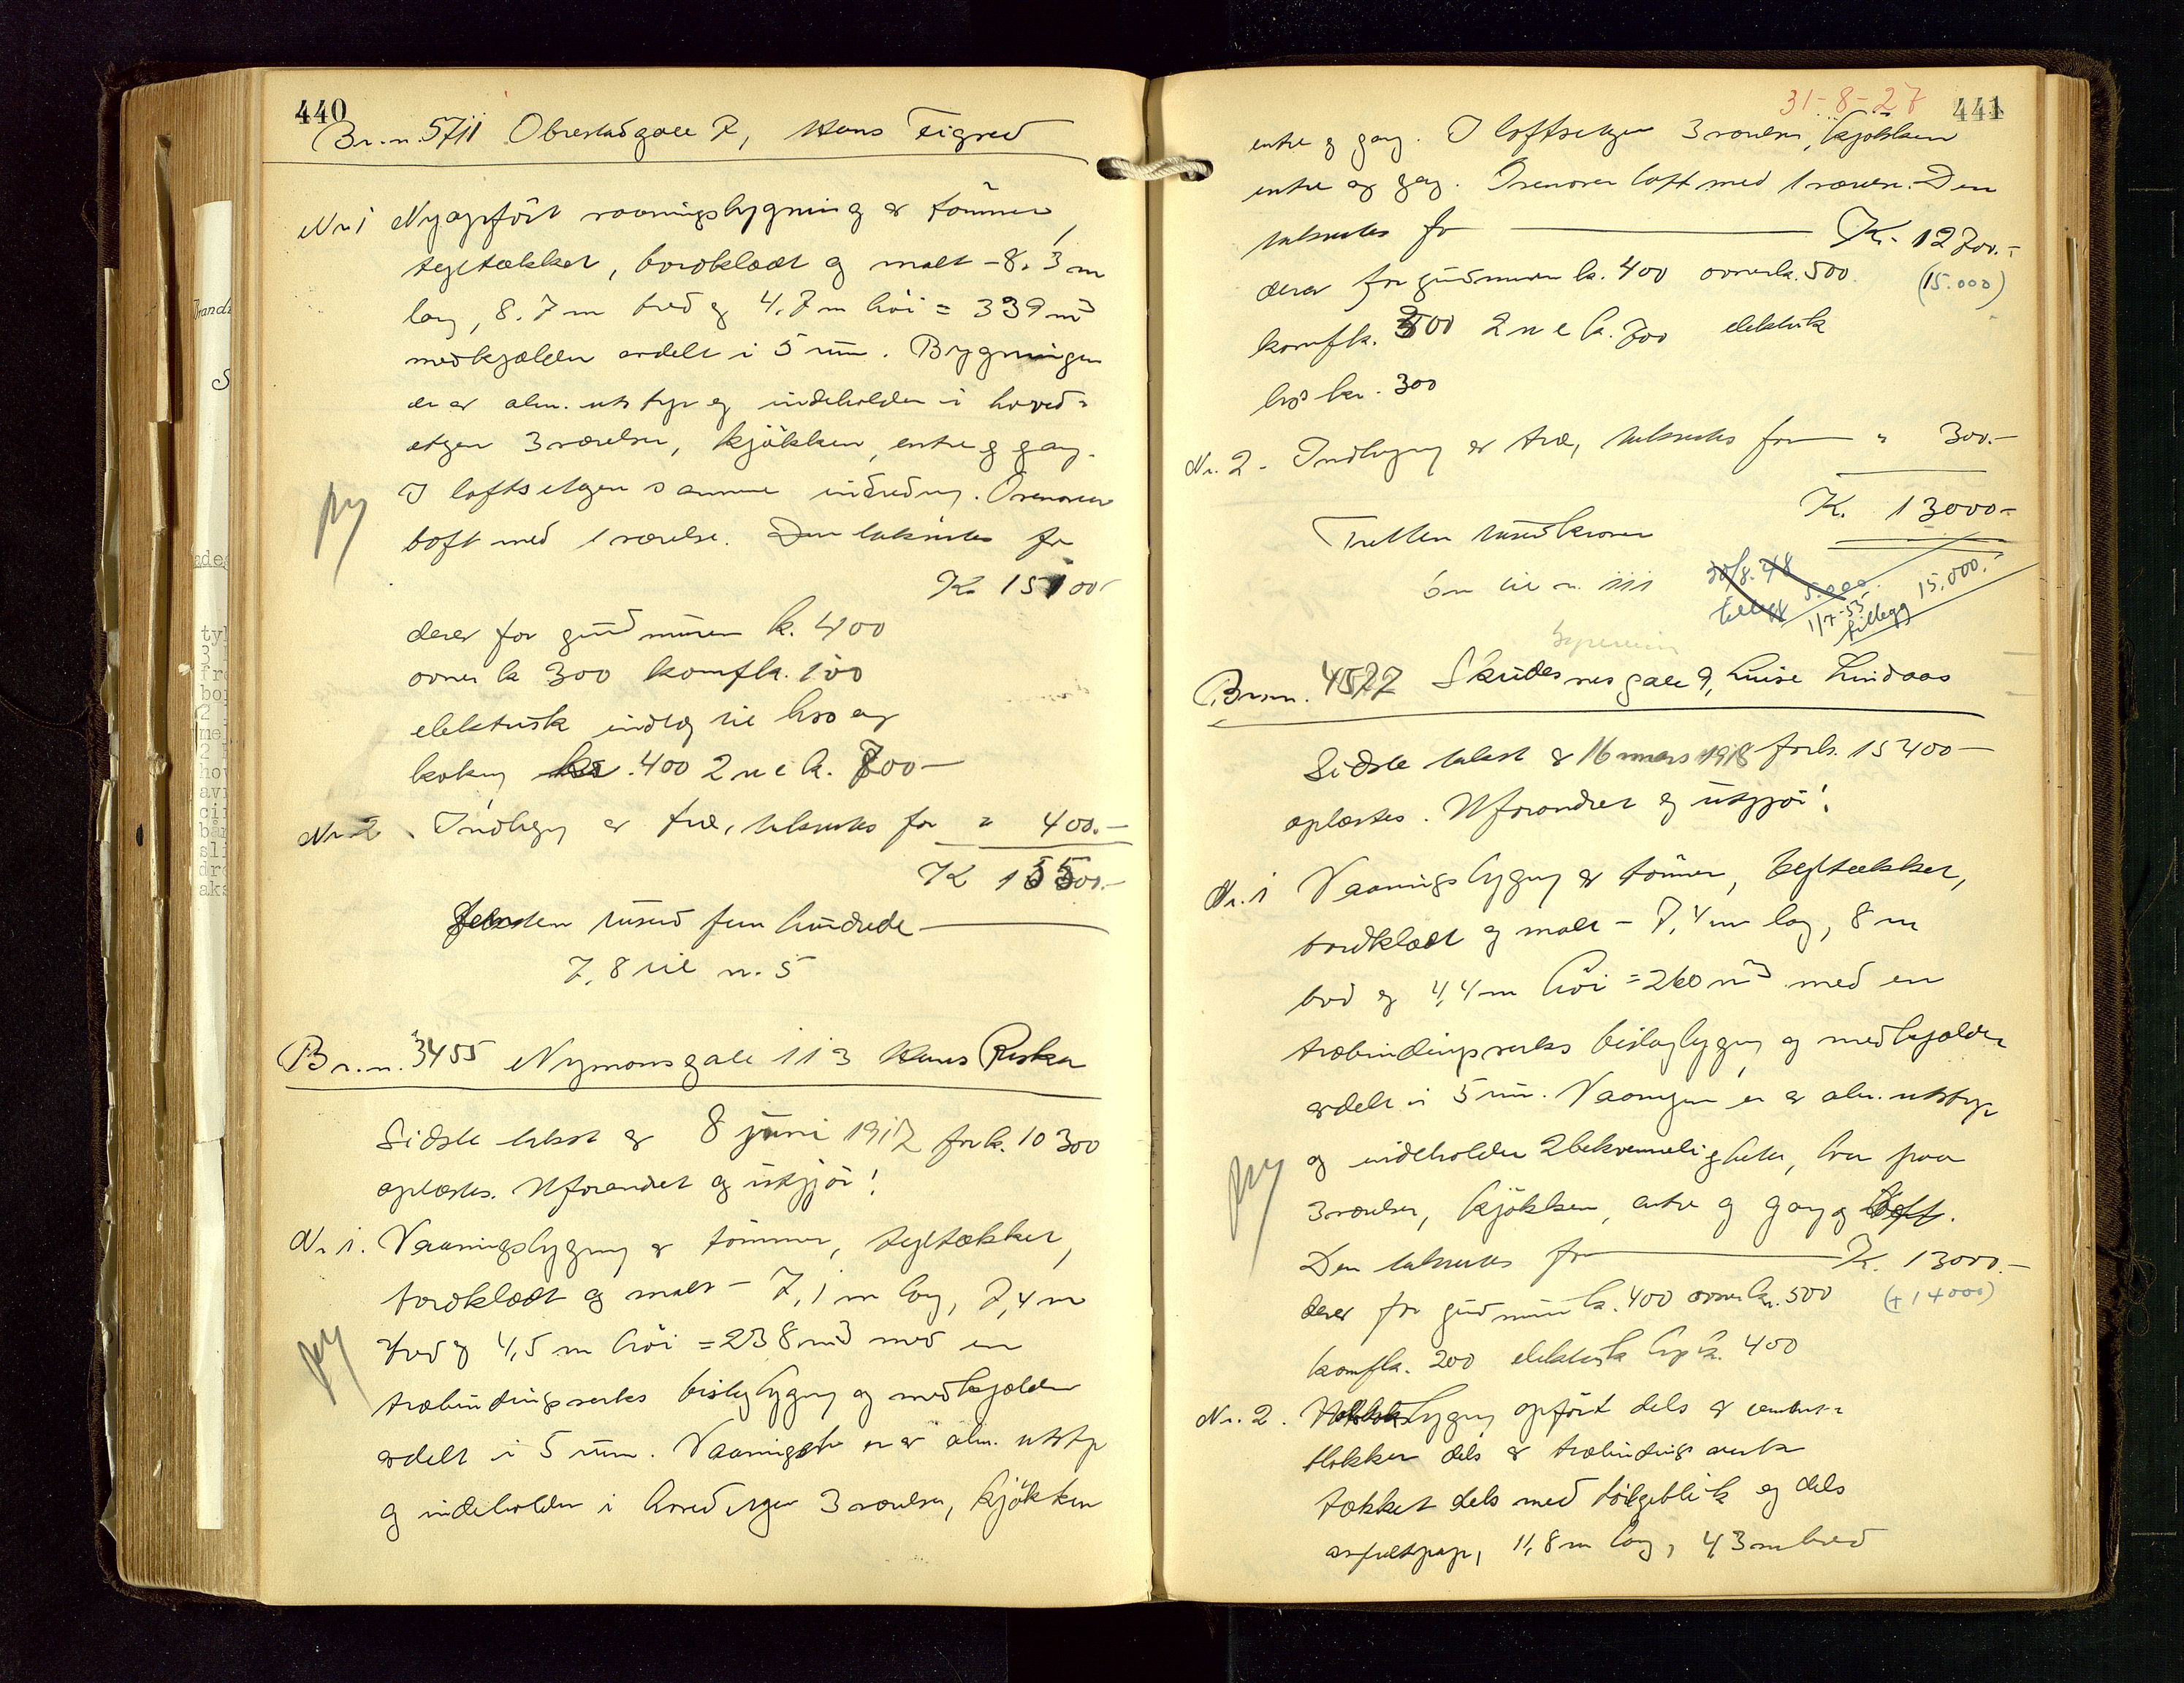 440
Br.n. 5711 Obrestadgate 7, Hans Tigred
Nr 1 Nyopført vaaningsbygning av tømmer,
tegltækket, bordklædt og malt - 8,3 m
lang, 8,7 m bred og 4,7 m høi = 339 m3
med kjælder avdelt i 5 rum. Bygningen
er av alm. utstyr og indeholder i hoved-
etagen 3 værelser, kjøkken, entre og gang.
I loftsetagen samme indredning. Ovenover
loft med 1 værelse. Den takseres for
K. 15100
derav for grundmuren k. 400
ovner k 300 komf k. 100
elektrisk indlæg til lys og
kokning kr. 400 2 w c k. 700 -
Nr 2. Indhegn. av træ, takseres for " 400.-
K 15500.-
Femten tusend fem hundrede
7,8 til n. 5
Br.n. 3455 Nymansgate 113 Hans Riska
Sidste takst av 8 juni 1917 for k. 10300
oplæstes. Uforandret og utgjør!
Nr 1. Vaaningsbygning av tømmer, tegltækket,
bordklædt og malt - 7,1 m lang, 7,4 m
bred og 4,5 m høi = 238 m3 med en
træbindingsverks bislagbygning og med kjælder
avdelt i 5 rum. Vaaningen er av alm. utstyr
og indeholder i hovedetagen 3 værelser, kjøkken
31-8-27 441
entre og gang. I loftsetagen 3 værelser, kjøkken
entre og gang. Ovenover loft med 1 værelse. Den
takseres for K. 12700.-
derav for grundmuren k. 400 ovner k. 500 (15.000)
komf k. 300 2 w c k. 700 elektrisk
lys kr. 300
Nr. 2 - Indhegning av træ, takseres for " 300.-
K. 13000-
Tretten tusend kroner
6 til n. 111
30/8.48
tillegg 5.000.
1/7-55 15.000.-
tillegg
Br.n. 4577 Skudesnesgate 9, Luise Lindaas
Sidste takst av 16 mars 1918 for k. 15400-
oplæstes. Uforandret og utgjør!
Nr. 1 Vaaningsbygning av tømmer, tegltækket,
bordklædt og malt - 7,4 m lang, 8 m
bred og 4,4 m høi = 260 m3 med en
træbindingsverks bislagbygning og med kjælder
avdelt i 5 rum. Vaaningen er av alm. utstyr
og indeholder 2 bekvemmeligheter, hver paa
3 værelser, kjøkken, entre og gang og loft.
Den takseres for K. 13000.-
derav for grundmur k. 400 ovner k. 500 (+14000)
komf k. 200 elektrisk lys k. 400
Nr. 2. bygning opført dels av cement-
blokker dels av træbindingsverk
tækket dels med bølgeblik og dels
asfaltpap, 11,8 m lang, 4,3 m bred